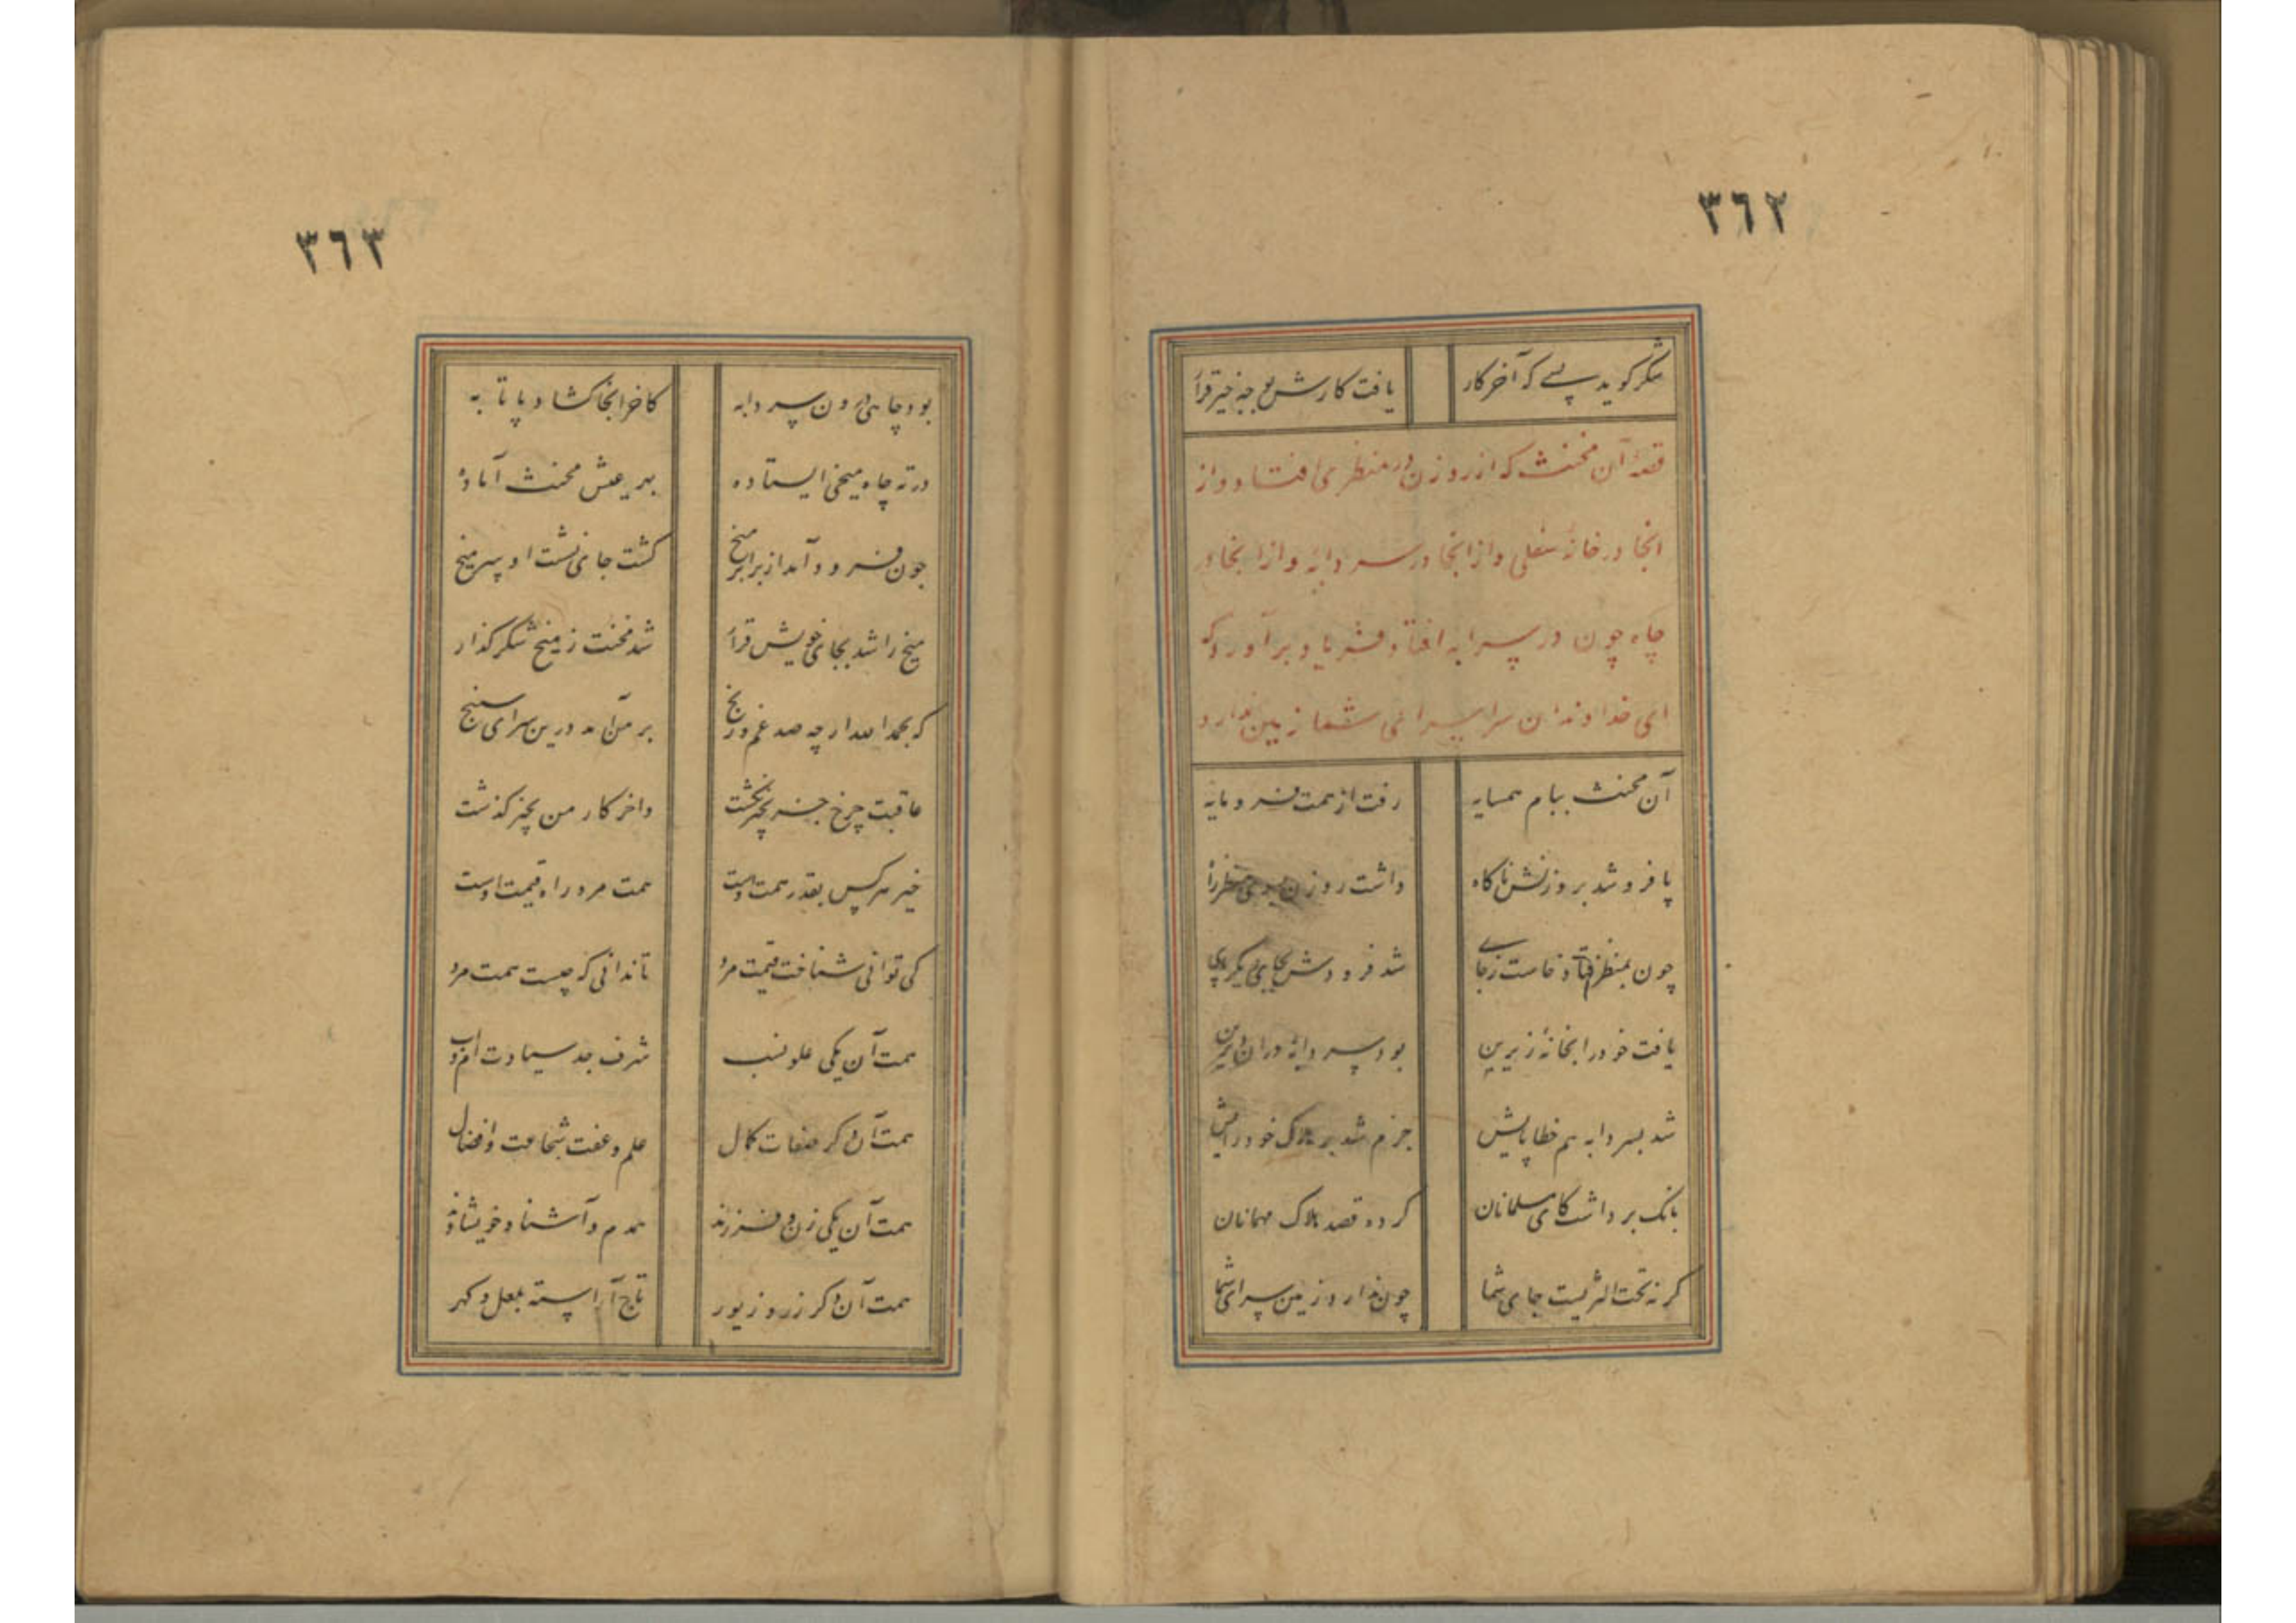 ٣٦٢
شکر گوید بسے که آخر کار یافت کارش بوجه خیر قرار
قصهٔ آن مخنث که از روزن در منظری افتاد و از
انجا در خانهٔ سفلی و از انجا در سردابهٔ و از انجا در
چاه چون در سردابه افتاد فریاد برآورد که
ای خداوندان سرا سرای شما زمین ندارد
آن مخنث ببام همسایه رفت از همت فرومایه
پا فرو شد بروزنش ناگاه داشت روزن بسوی منظر راه
چون بمنظر فتاد و خاست ز جای شد فرودش بجای دیگر پای
یافت خود را بخانهٔ زیرین بود سردابهٔ دران
شد بسردابه هم خطا پایش جزم شد بر هلاک خود رایش
بانک برداشت کای مسلمانان کرده قصد هلاک مهمانان
گر نه تحت الثریست جای شما چون ندارد زمین سرای شما
٣٦٣
بود چاهی درون سردابه کاخر انجا گشاد پاتابه
در ته چاه میخی ایستاده بهر عیش مخنث آماده
چون فرود آمد از برابر میخ گشت جای نشست او سر میخ
میخ را شد بجای خویش قرار شد مخنث ز میخ شکر گذار
که بحمدالله ار چه صد غم و رنج بر من آمد درین سرای سپنج
عاقبت چرخ جز بخیر نگشت واخر کار من بخیر گذشت
خیر هر کس بقدر همت اوست همت مرد را قیمت اوست
کی توانی شناخت قیمت مرد تا ندانی که چیست همت مرد
همت آن یکی علو نسب شرف جد سیادت ام و اب
همت آن دگر صفات کمال علم و عفت شجاعت و افضال
همت آن یکی زن و فرزند همدم و آشنا و خویشاوند
همت آن دگر زر و زیور تاج آراسته بلعل و گهر